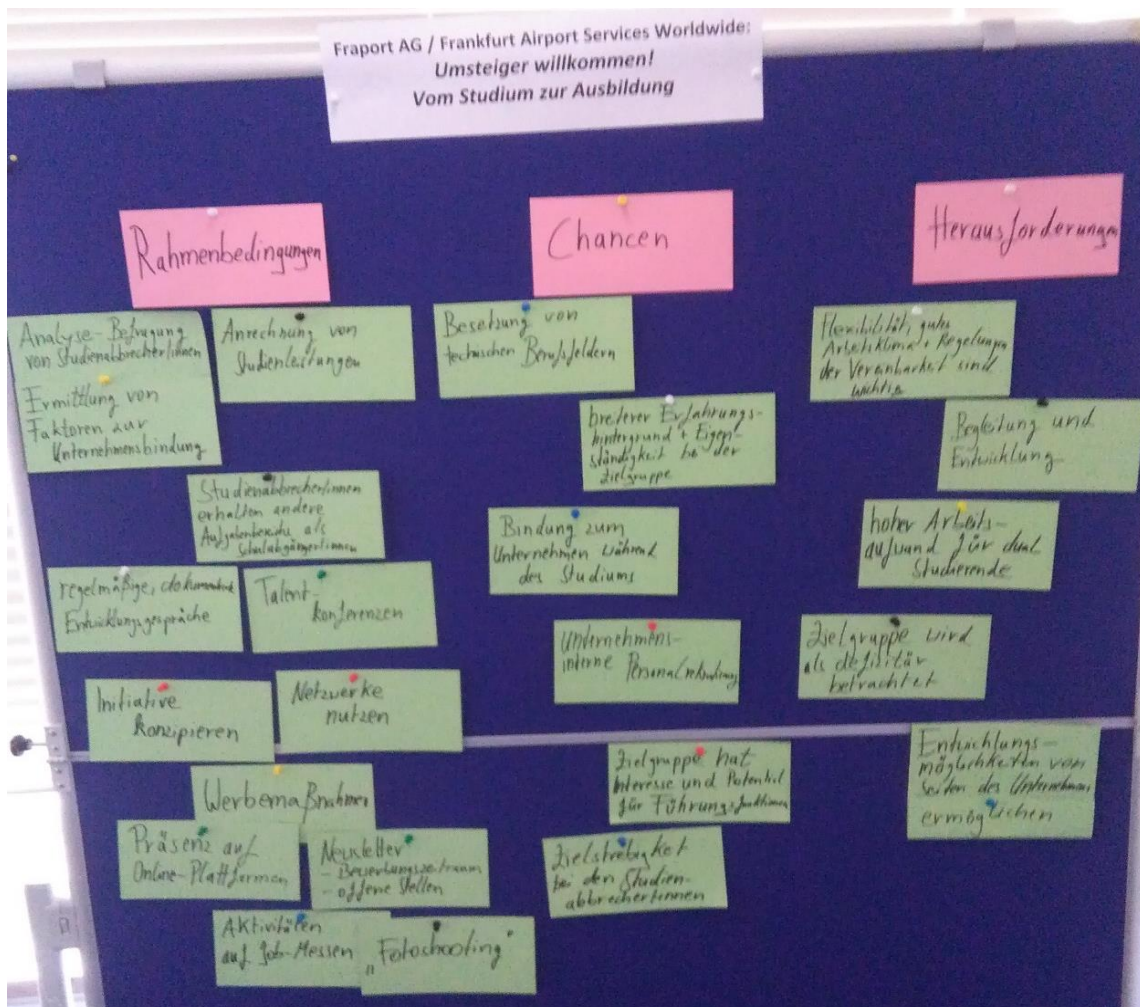 Fraport AG / Frankfurt Airport Services Worldwide:
Umsteiger willkommen!
Vom Studium zur Ausbildung
Rahmenbedingungen
Analyse-Befragung
von Studienabbrecher/innen
Ermittlung von
Faktoren zur
Unternehmensbindung
Anrechnung von
Studienleistungen
Studienabbrecher/innen
erhalten andere
Aufgabenbereiche als
Schulabgänger/innen
regelmäßige, dokumentierte
Entwicklungsgespräche
Talent-
konferenzen
Initiative
konzipieren
Netzwerke
nutzen
Werbemaßnahmen
Präsenz auf
Online-Plattformen
Newsletter
- Bewerbungszeitraum
- offene Stellen
Aktivitäten
auf Job-Messen
„Fotoshooting"
Chancen
Besetzung von
technischen Berufsfeldern
breiterer Erfahrungs-
hintergrund + Eigen-
ständigkeit bei der
Zielgruppe
Bindung zum
Unternehmen während
des Studiums
Unternehmens-
interne Personalrekrutierung
Zielgruppe hat
Interesse und Potential
für Führungsfunktionen
Zielstrebigkeit
bei den Studien-
abbrecher/innen
Herausforderungen
Flexibilität, gutes
Arbeitsklima + Regelungen
der Vereinbarkeit sind
wichtig
Begleitung und
Entwicklung
hoher Arbeits-
aufwand für dual
Studierende
Zielgruppe wird
als defizitär
betrachtet
Entwicklungs-
möglichkeiten von
Seiten des Unternehmens
ermöglichen